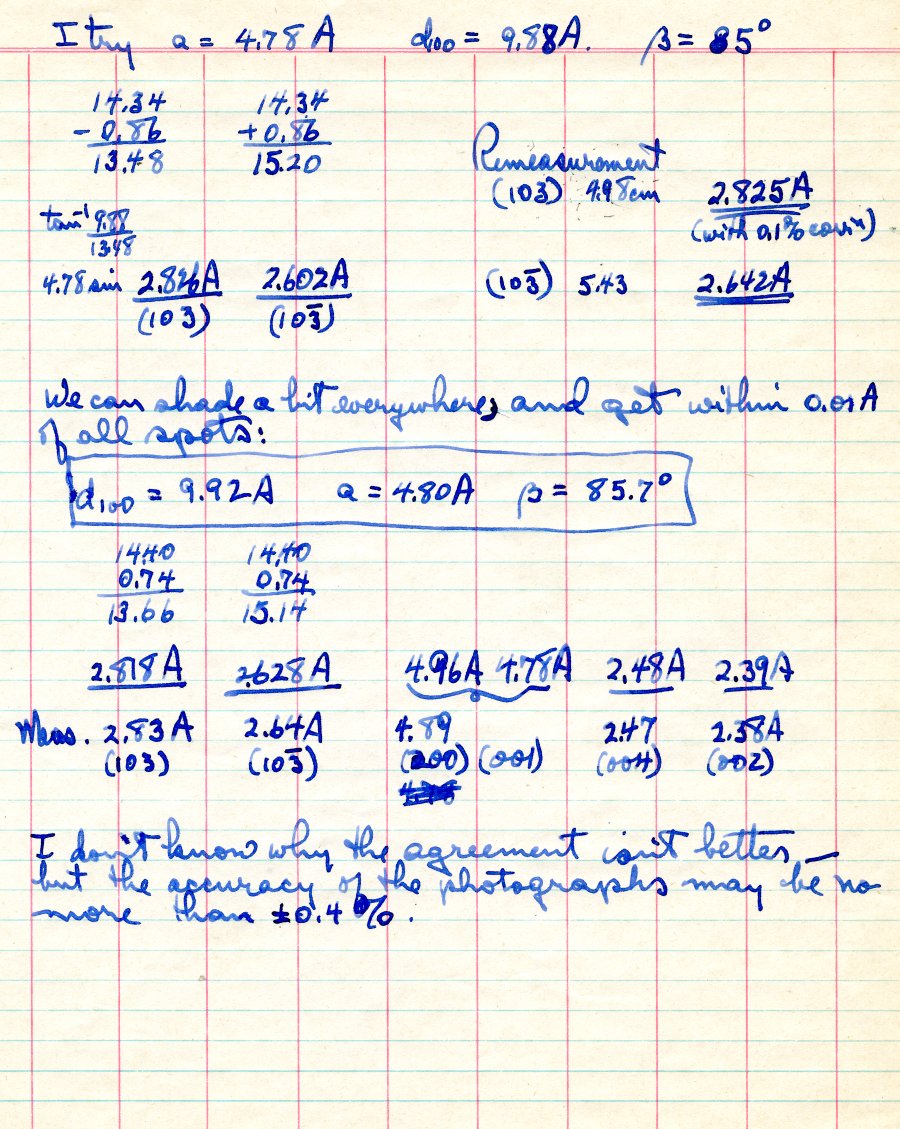 I try a = 4.78 A d100 = 9.88A. β = 85°
14.34 14.34
- 0.86 + 0.86
13.48 15.20
Remeasurement
(103) 4.98cm 2.825A
(with 0.1% corr'n)
tan⁻¹ 9.88/13.48
4.78 sin 2.826A 2.602A
(103) (103̄)
(103̄) 5.43 2.642A
We can shade a bit everywhere, and get within 0.01A
of all spots:
d100 = 9.92A a = 4.80A β = 85.7°
14.40 14.40
0.74 0.74
13.66 15.14
2.818A 2.628A 4.96A 4.78A 2.48A 2.39A
Meas. 2.83A 2.64A 4.89 2.47 2.38A
(103) (103̄) (200) (001) (004) (002)
I don't know why the agreement isn't better, —
but the accuracy of the photographs may be no
more than ±0.4%.